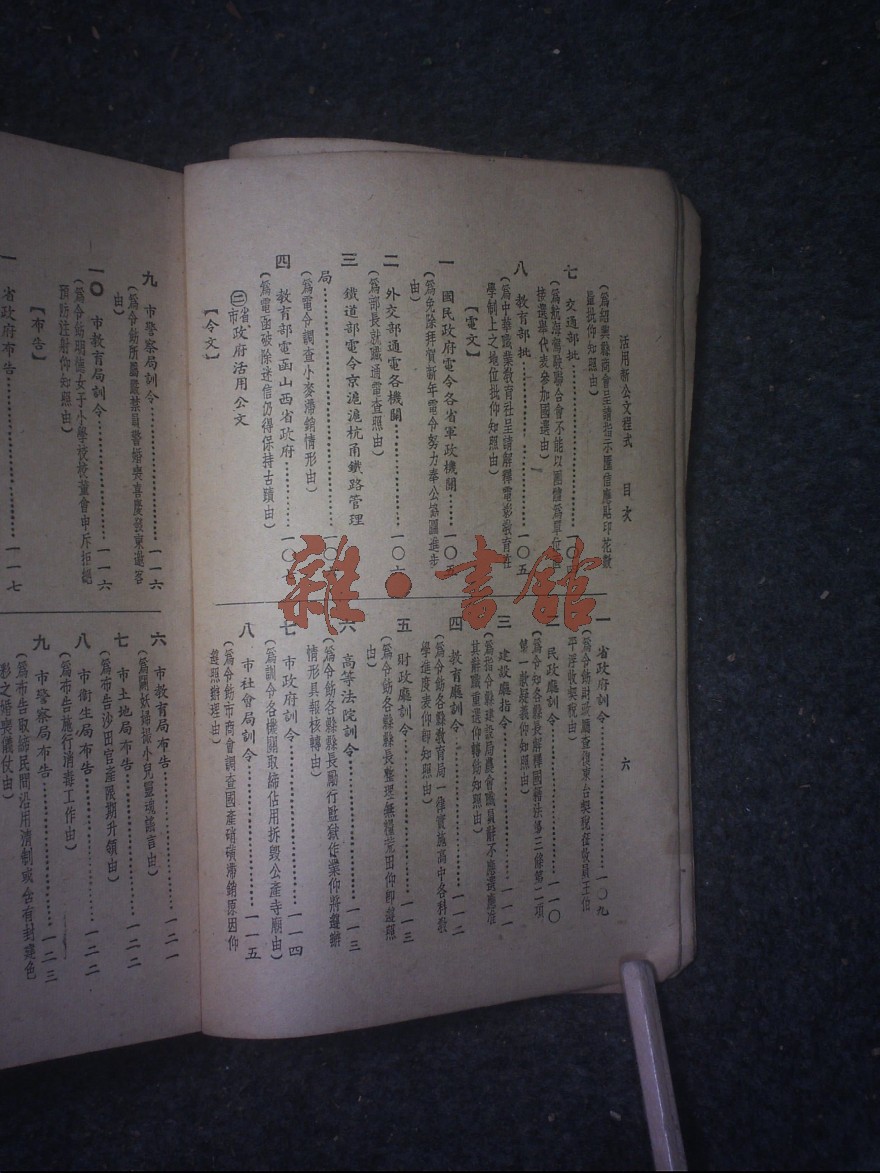 活用新公文程式　目次
六
（爲紹興縣商會呈請指示匯信應貼印花數
批仰知照由）
七　交通部批
接選舉代表參加國選由）
八　教育部批……一〇五
（爲中華職業教育社呈請解釋電影教育在
學制上之地位批仰知照由）
【電文】
一　國民政府電令各省軍政機關……一〇五
（爲免除拜賀新年電令努力奉公協圖進步
由）
二　外交部通電各機關……一〇六
（爲部長就職通電查照由）
三　鐵道部電令京滬滬杭甬鐵路管理
局……一〇
（爲電令調查小麥滯銷情形由）
四　教育部電函山西省政府……一〇
（爲電函破除迷信仍得保持古蹟由）
㊂省市政府活用公文
【令文】
一　省政府訓令……一〇九
平浮收契稅由）
二　民政廳訓令……一一〇
（爲令知各縣長解釋國籍法第三條第二項
第一款疑義仰知照由）
三　建設廳指令……一一一
（爲指令縣建設局農會職員辭不應選應准
其辭職重選仰轉飭知照由）
四　教育廳訓令……一一二
（爲令飭各縣教育局一律實施高中各科教
學進度表仰卽知照由）
五　財政廳訓令……一一三
（爲令飭各縣縣長整理無糧荒田仰卽遵照
由）
六　高等法院訓令……一一三
（爲令飭各縣縣長勵行監獄作業仰將遵辦
情形具報核轉由）
七　市政府訓令……一一四
（爲訓令各機關取締佔用拆毀公產寺廟由）
八　市社會局訓令……一一五
（爲令飭市商會調查國產硝磺滯銷原因仰
遵照辦理由）
九　市警察局訓令……一一六
（爲令飭所屬嚴禁員警婚喪喜慶發柬邀客
由）
一〇　市教育局訓令……一一六
（爲令飭期德女子小學校校董會申斥拒絕
預防注射仰知照由）
【布告】
一　省政府布告……一一七
六　市教育局布告……一二一
（爲闢妖婦攝小兒靈魂謠言由）
七　市土地局布告……一二二
（爲布告沙田官產限期升領由）
八　市衛生局布告……一二二
（爲布告施行消毒工作由）
九　市警察局布告……一二三
（爲布告取締民間沿用清制或含有封建色
彩之婚喪儀仗由）
雜·書館